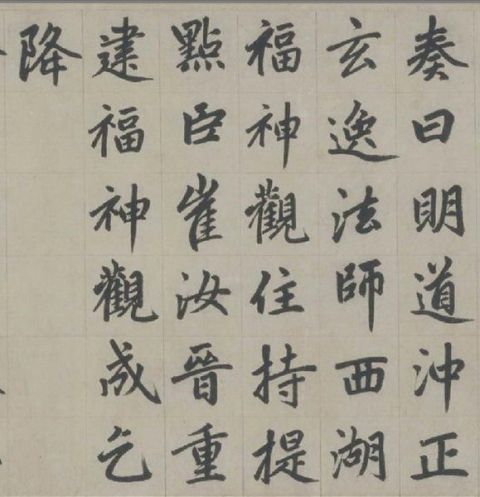 奏曰明道沖正
玄逸法師西湖
福神觀住持提
點臣崔汝晉重
建福神觀成乞
降